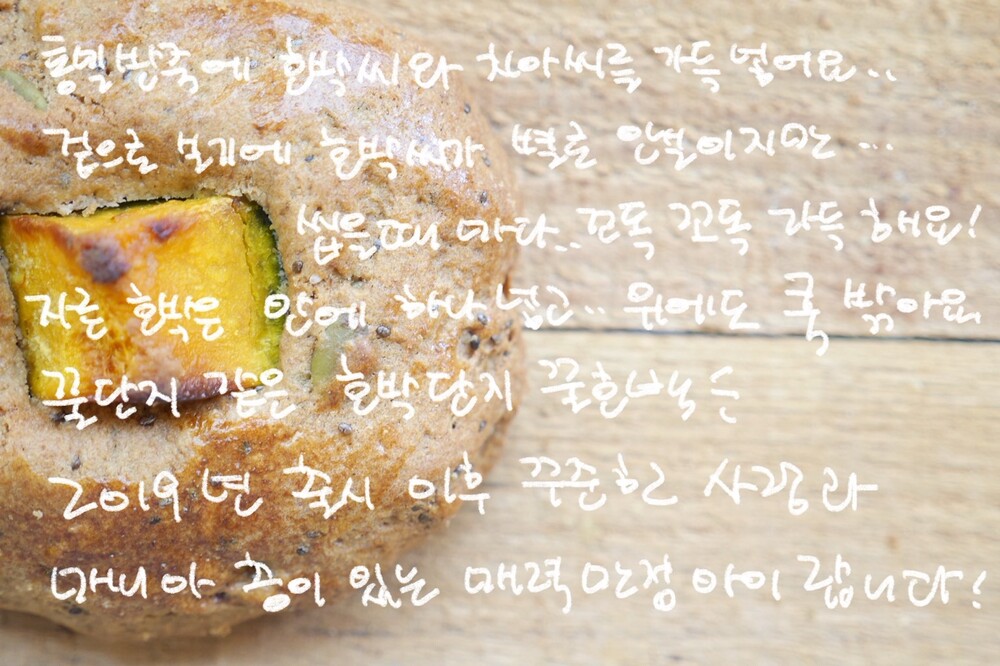 통밀반죽에 호박씨와 치아씨를 가득 넣어요..
겉으로 보기에 호박씨가 별로 안보이지만...
씹을때 마다..꼬독 꼬독 가득 해요!
자른 호박은 안에 하나 넣고.. 위에도 쿡 박아요
꿀단지 같은 호박단지 꿀호박은
2019년 출시 이후 꾸준한 사랑과
매니아 층이 있는 매력만점 아이 랍니다!